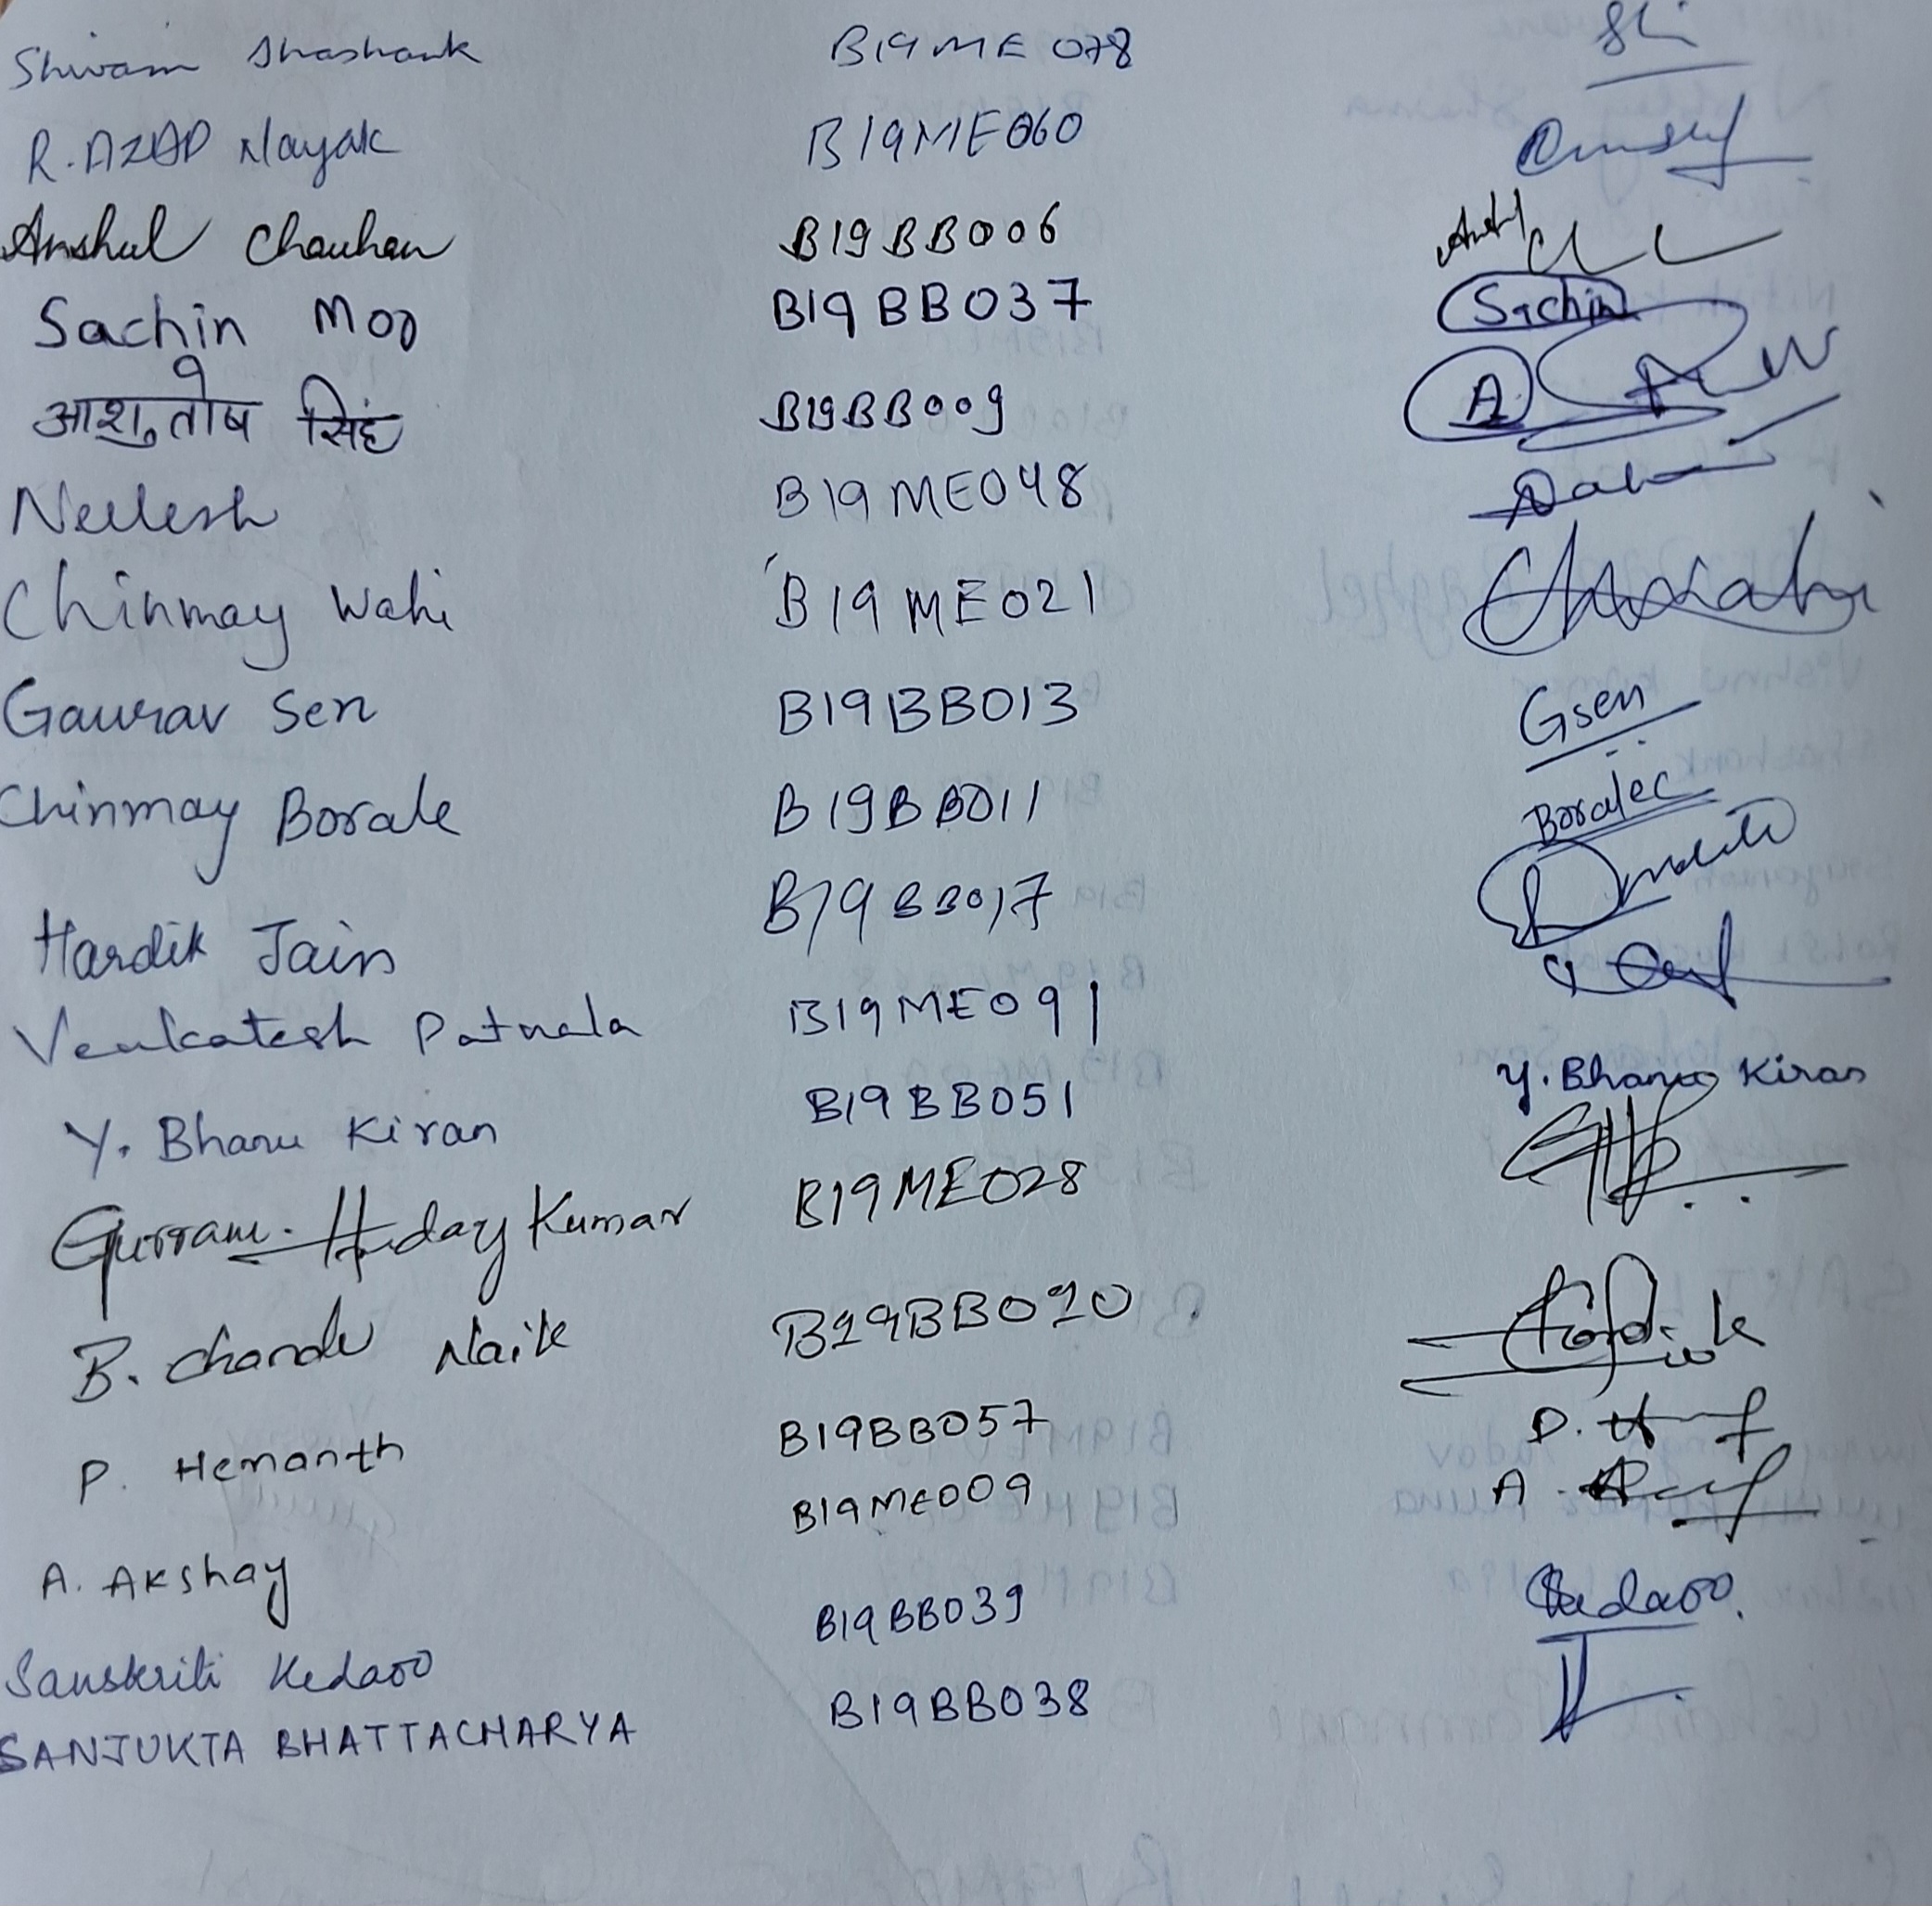 Shivam Shashank B19ME078
R. AZAD Nayak B19ME060
Anshul Chauhan B19BB006
Sachin Moo B19BB037 Sachin
आशुतोष सिंह B19BB009 A
Neelesh B19ME048
Chinmay Wahi B19ME021
Gaurav Sen B19BB013 Gsen
Chinmay Borale B19BB011 Boralec
Hardik Jain B19BB017
Venkatesh Patnala B19ME091
Y. Bhanu Kiran B19BB051 Y. Bhanu Kiran
Gurram. Huday Kumar B19ME028
B. Chandu Naik B19BB010
P. Hemanth B19BB057
A. Akshay B19ME009
Sanskriti Kedaoo B19BB039 Kedaoo.
SANJUKTA BHATTACHARYA B19BB038